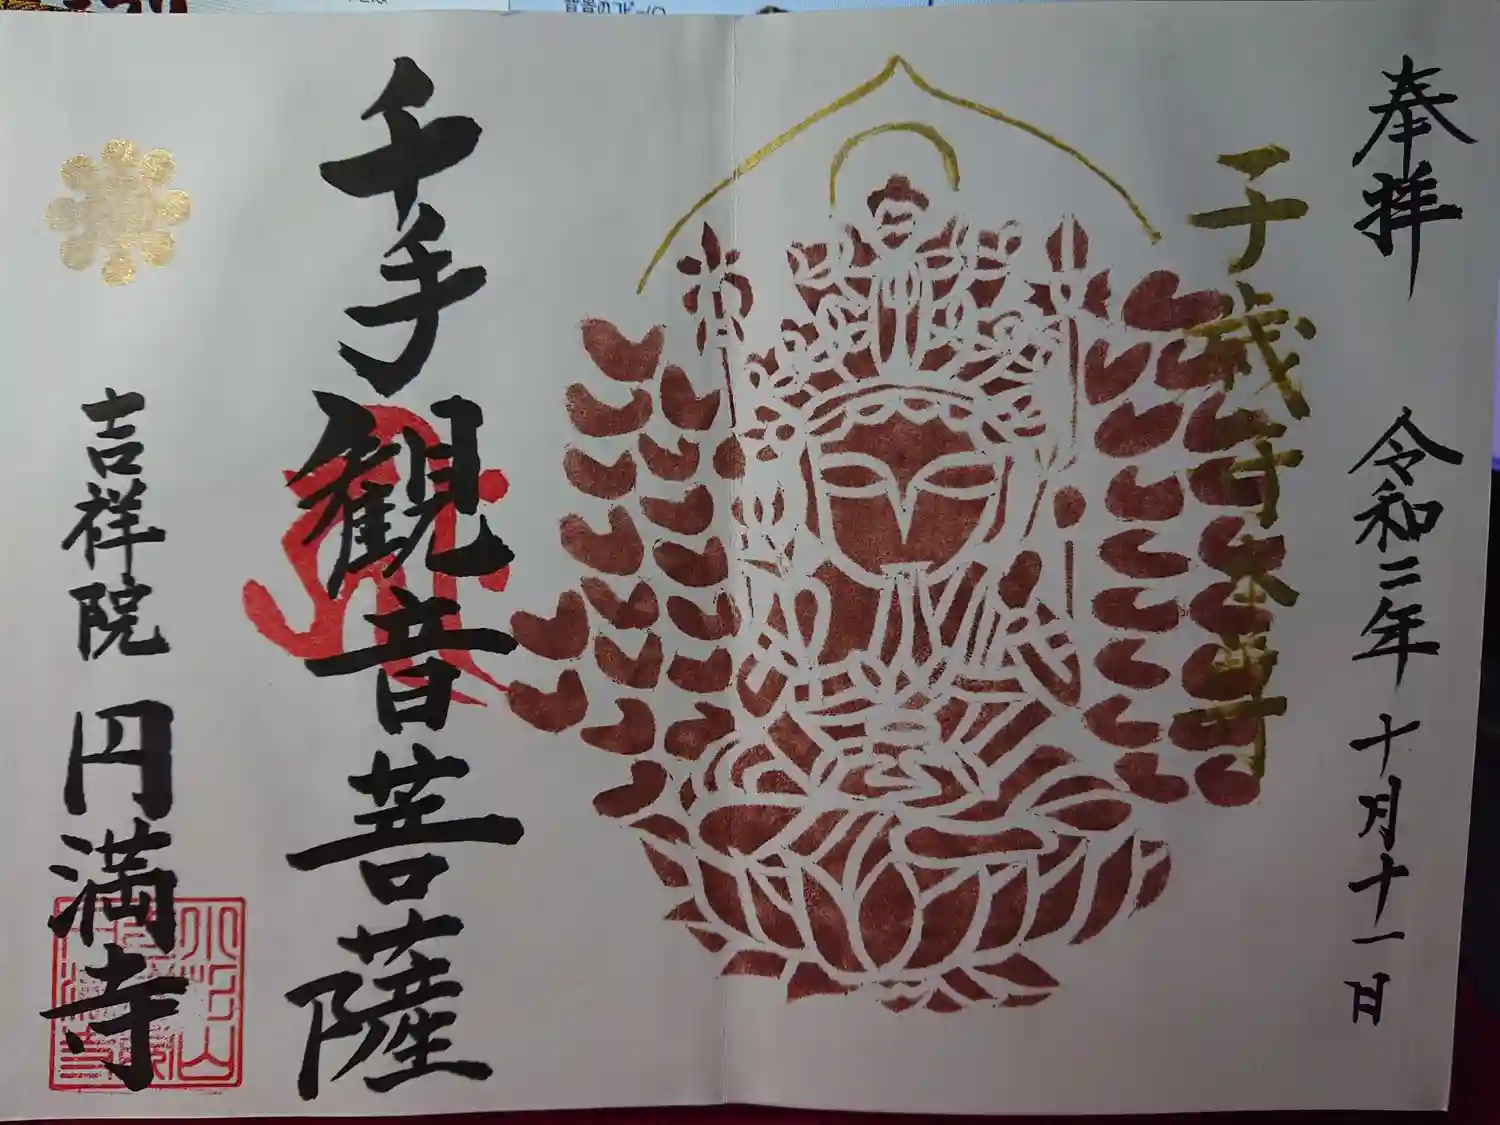 奉拝　令和二年　十月十一日
子歳守本尊
千手観音菩薩
吉祥院　円満寺